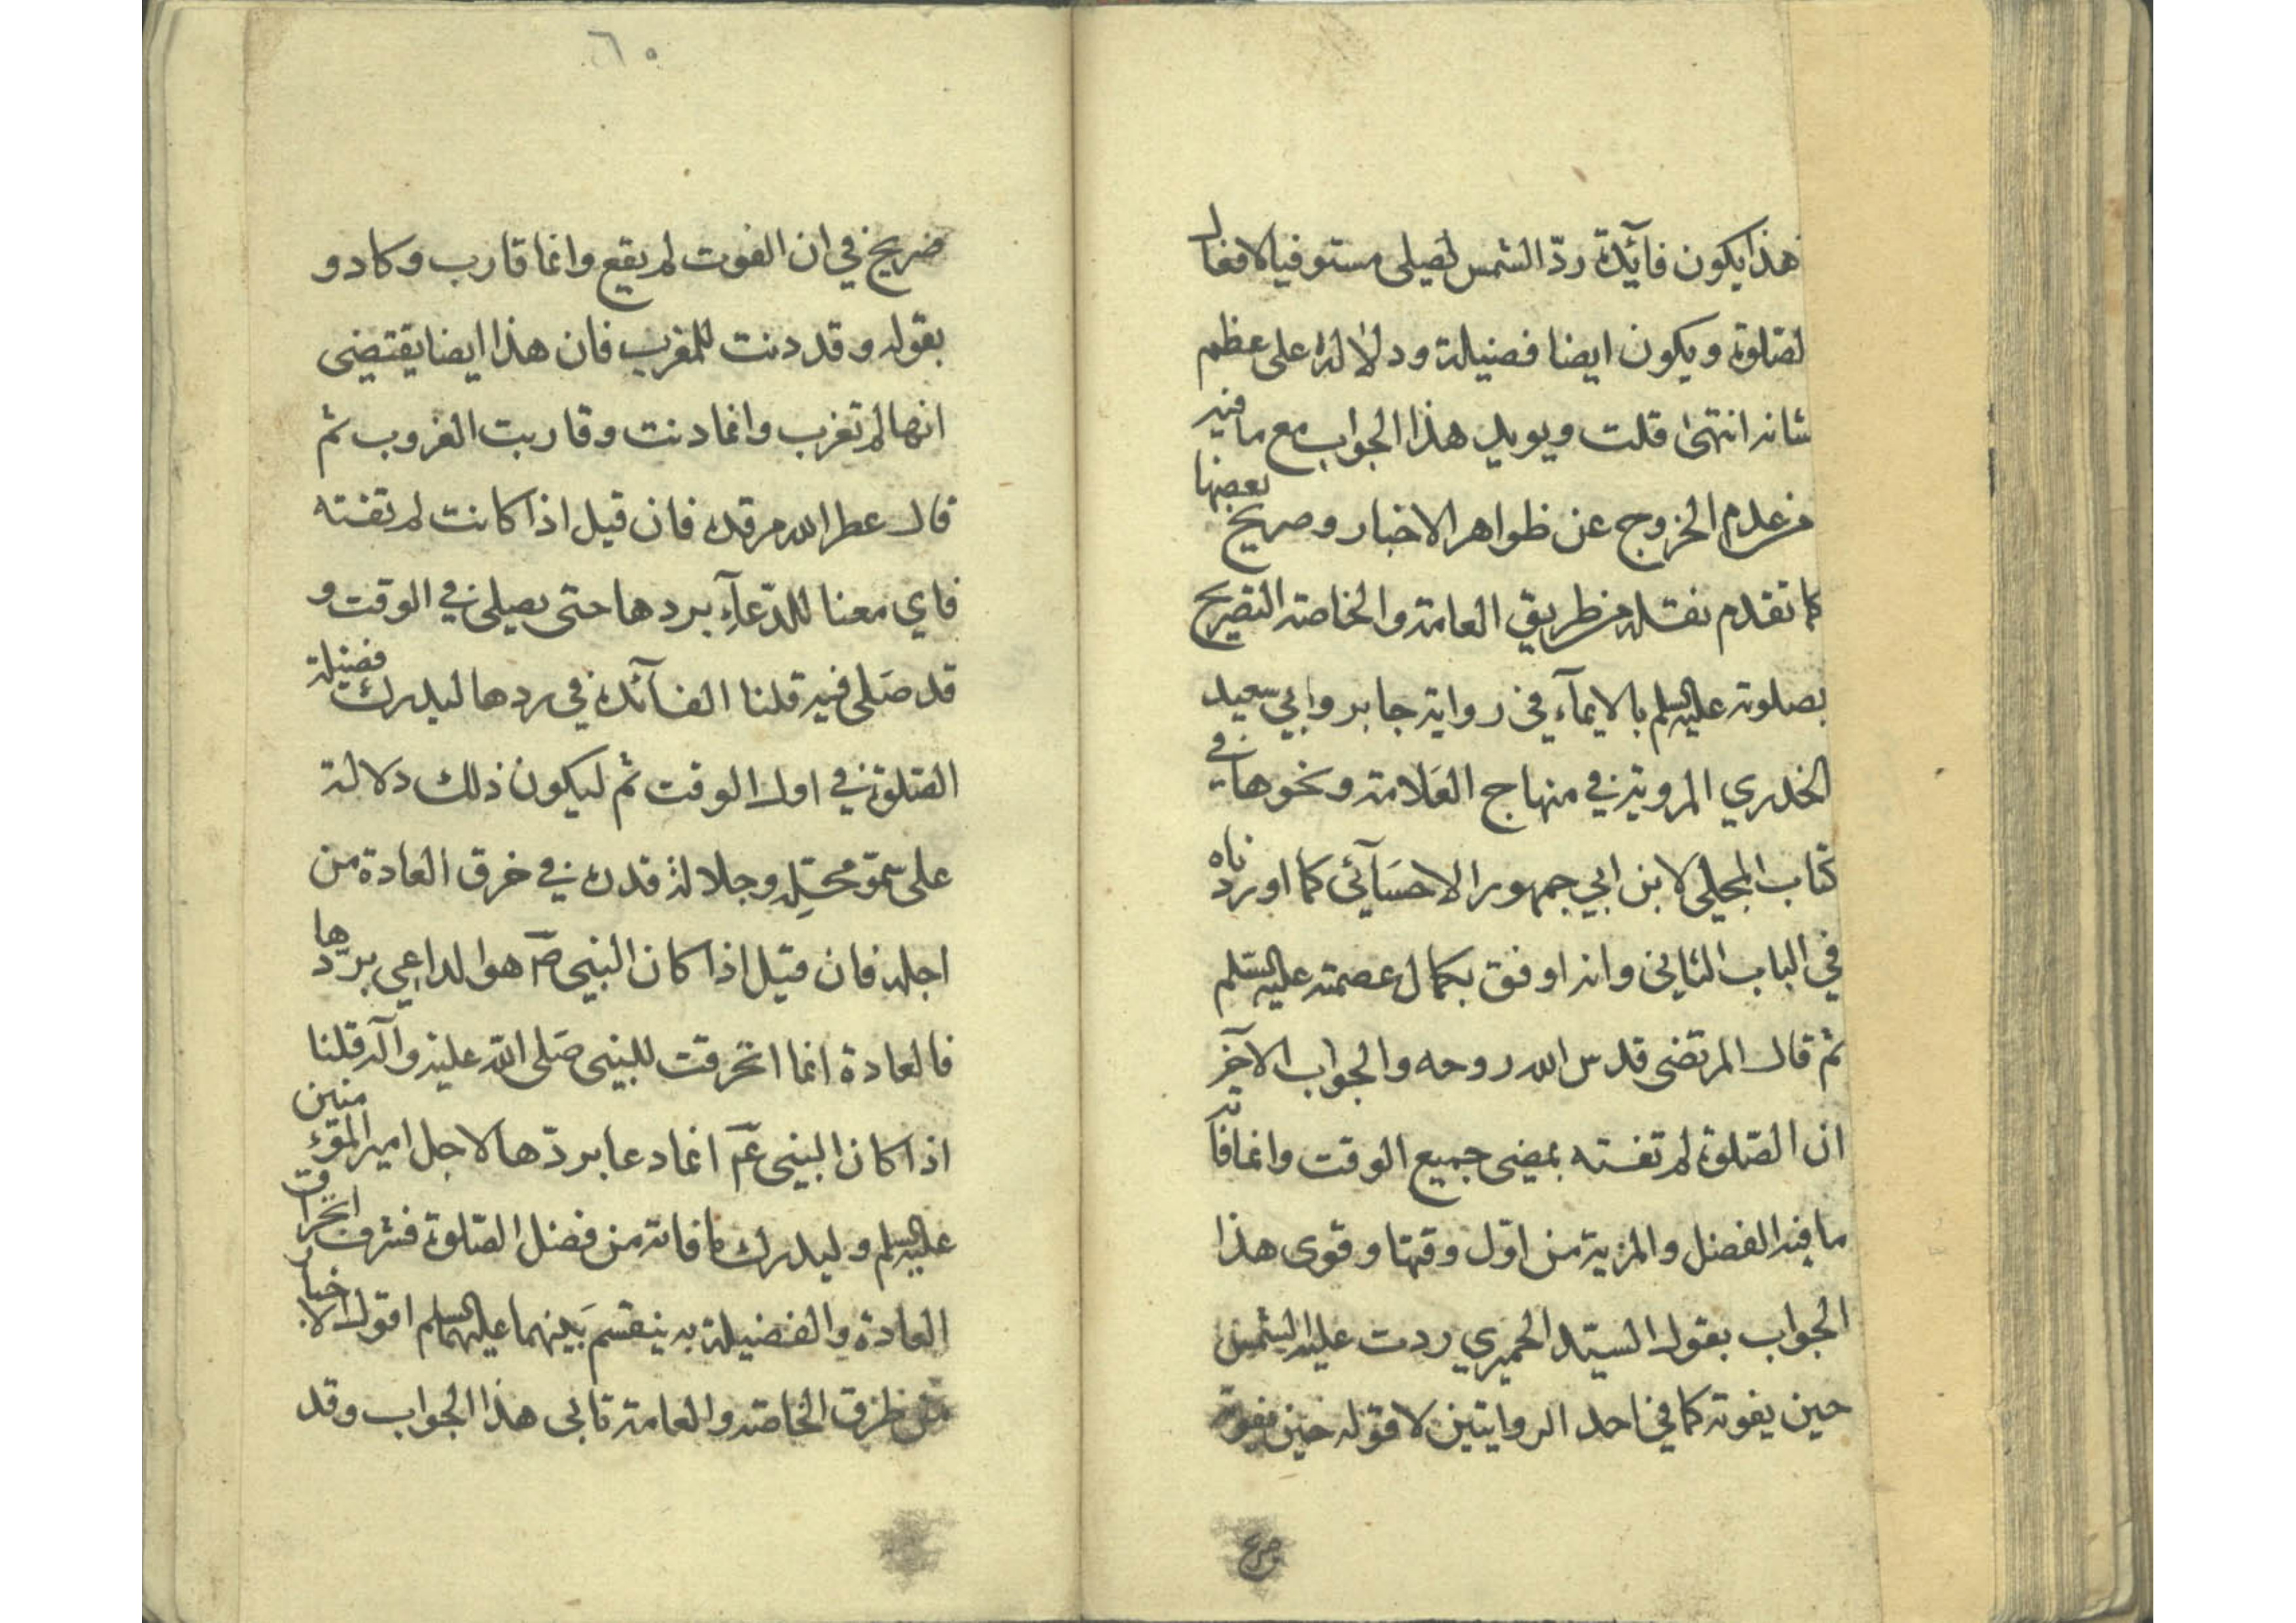 هذا يكون فآئدة ردّ الشمس ليصلي مستوفيا لافعال
لصّلوة ويكون ايضا فضيلة ودلالة على عظم
شانه انتهى قلت ويويد هذا الجواب مع ما فيه
من عدم الخروج عن ظواهر الاخبار وصريح بعضها
كما تقدم نقله من طريق العامة والخاصة التصريح
بصلوته عليه السلم بالايمآء في رواية جابر وابي سعيد
الخدري المروية في منهاج العلامة ونحوها في
كتاب المجلي لابن ابي جمهور الاحسآئي كما اوردناه
في الباب الثاني وانه اوفق بكمال عصمته عليه السلم
ثم قال المرتضى قدس الله روحه والجواب الآخر
ان الصّلوة لم تفته بمضي جميع الوقت وانما فاته
ما فيه الفضل والمزية من اوّل وقتها وقوى هذا
الجواب بقول السيد الحميري ردت عليه الشمس
حين يفوته كما في احد الروايتين لا قوله حين تفوته
صريح
٦٠
صريح في ان الفوت لم يقع وانما قارب وكاد و
بقوله وقد دنت للمغرب فان هذا ايضا يقتضي
انها لم تغرب وانما دنت وقاربت الغروب ثم
قال عطر الله مرقده فان قيل اذا كانت لم تفته
فاي معنا للدّعآء بردها حتى يصلي في الوقت و
قد صَلى فيه قلنا الفآئدة في ردها ليدرك فضيلة
الصّلوة في اول الوقت ثم ليكون ذلك دلالة
على سمّو محلّه وجلالة قدره في خرق العادة من
اجله فان قيل اذا كان النبي صَ هو الداعي بردّها
فالعادة انما انخرقت للنبي صَلى الله عليه وآله قلنا
اذا كان النبي عَ انما دعا بردّها لاجل امير المؤمنين
عليه السلم وليدرك ما فاته من فضل الصّلوة فشرف انخراق
العادة والفضيلة به ينقسم بَينهما عليهما السلم اقول الاخبار
من طرق الخاصة والعامة تابى هذا الجواب وقد